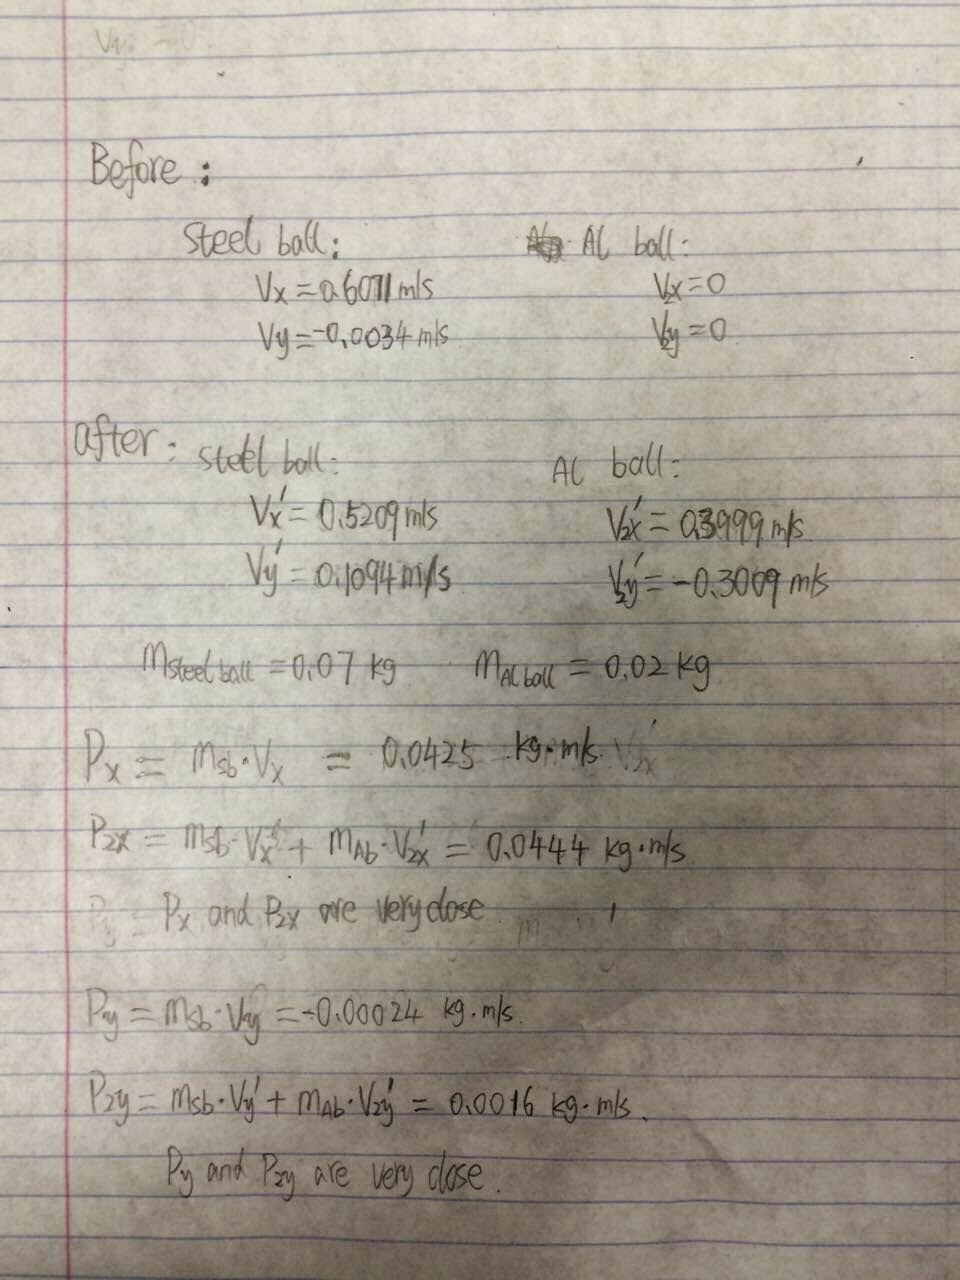 Before :
Steel ball: Al ball:
Vx = 0.6071 m/s V2x = 0
Vy = -0.0034 m/s V2y = 0
after: steel ball: Al ball:
Vx' = 0.5209 m/s V2x' = 0.3999 m/s
Vy' = 0.1094 m/s V2y' = -0.3009 m/s
Msteel ball = 0.07 kg MAl ball = 0.02 kg
Px = Msb·Vx = 0.0425 kg·m/s.
P2x = Msb·Vx' + MAb·V2x' = 0.0444 kg·m/s
Px and P2x are very close.
Py = Msb·Vy = -0.00024 kg·m/s.
P2y = Msb·Vy' + MAb·V2y' = 0.0016 kg·m/s.
Py and P2y are very close.